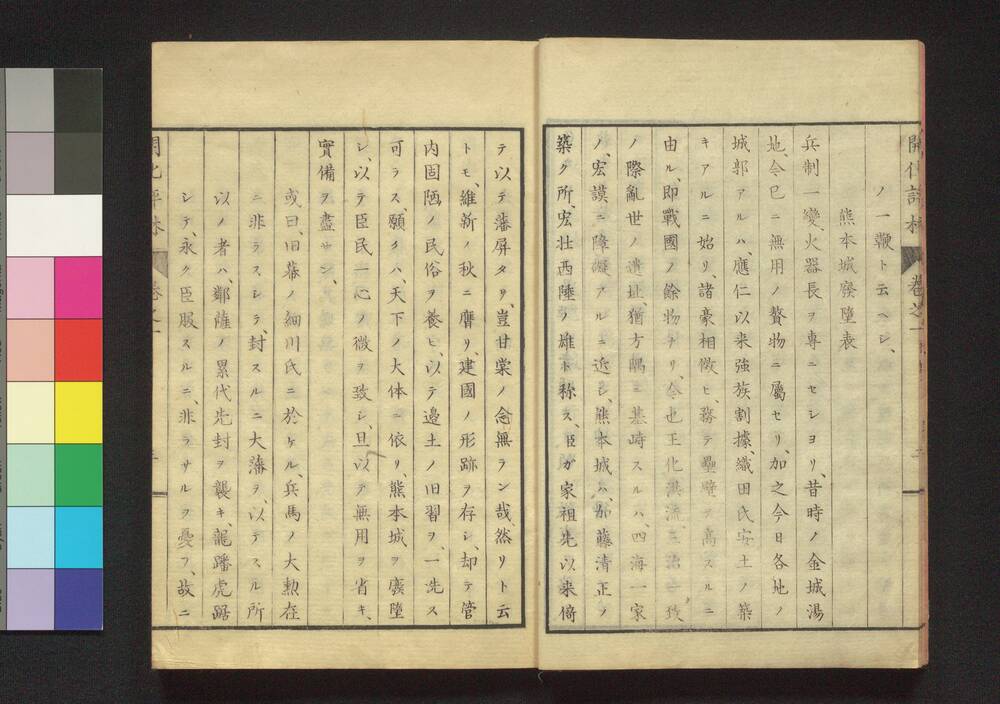 開化評林 巻之一
ノ一鞭ト云ヘシ、
熊本城廢墮表
兵制一變、火器長ヲ專ニセシヨリ、昔時ノ金城湯
地、今已ニ無用ノ贅物ニ屬セリ、加之今日各地ノ
城郭アルハ、應仁以来強族割據、織田氏安土ノ築
キアルニ始リ、諸豪相倣ヒ、務テ壘壁ヲ高スルニ
由ル、即戰國ノ餘物ナリ、今也王化洪流、三治一致
ノ際亂世ノ遺址、猶方隅ニ基峙スルハ、四海一家
ノ、宏謨ニ障礙アルニ近シ、熊本城ハ、加藤清正ノ
築ク所、宏壮西陲ノ雄ト称ス、臣ガ家祖先以来倚
テ以テ藩屏タリ、豈甘棠ノ念無ラン哉、然リト云
トモ、維新ノ秋ニ膺リ、建國ノ形跡ヲ存シ、却テ管
内固陋ノ民俗ヲ養ヒ、以テ邉土ノ旧習ヲ、一洗ス
可ラス、願クハ、天下ノ大体ニ依リ、熊本城ヲ廢墮
シ、以テ臣民一心ノ微ヲ致シ、且以テ無用ヲ省キ、
實備ヲ盡サン、
或曰、旧幕ノ細川氏ニ於ケル、兵馬ノ大勲在
ニ非ラスシテ、封スルニ大藩ヲ、以テスル所
以ノ者ハ、鄰薩ノ累代先封ヲ襲キ、龍蟠虎踞
シテ、永ク臣服スルニ、非ラサルヲ憂フ、故ニ
開化評林 巻之一